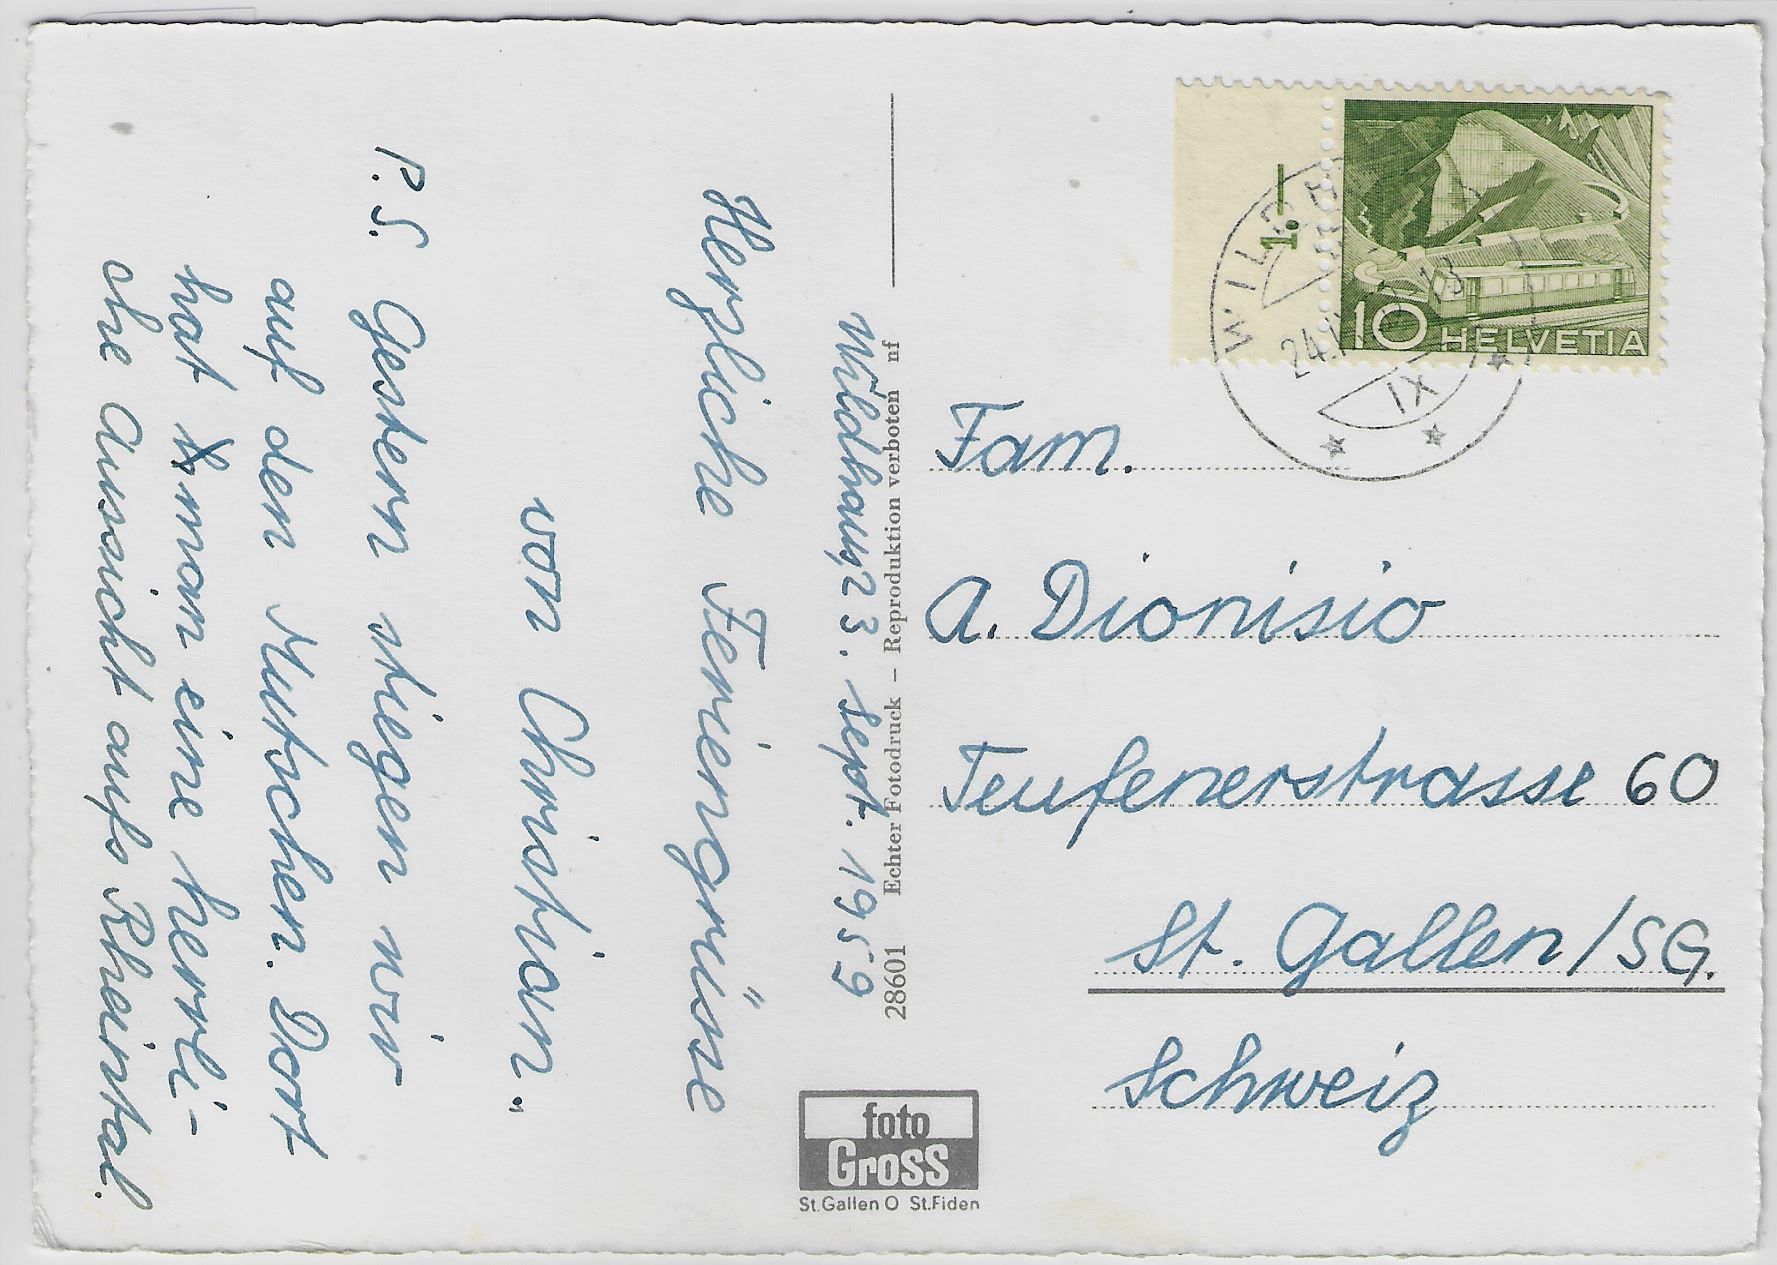 Wildhaus, 23. Sept. 1959
Herzliche Feriengrüsse
von Christian"
P.S. Gestern stiegen wir
auf den Mutschen. Dort
hat man eine herrli-
che Aussicht aufs Rheintal.
28601 Echter Fotodruck – Reproduktion verboten nf
foto
Gross
St.Gallen O St.Fiden
1.
10 HELVETIA
24. IX
Fam.
A. Dionisio
Teufenerstrasse 60
St. Gallen/SG.
Schweiz